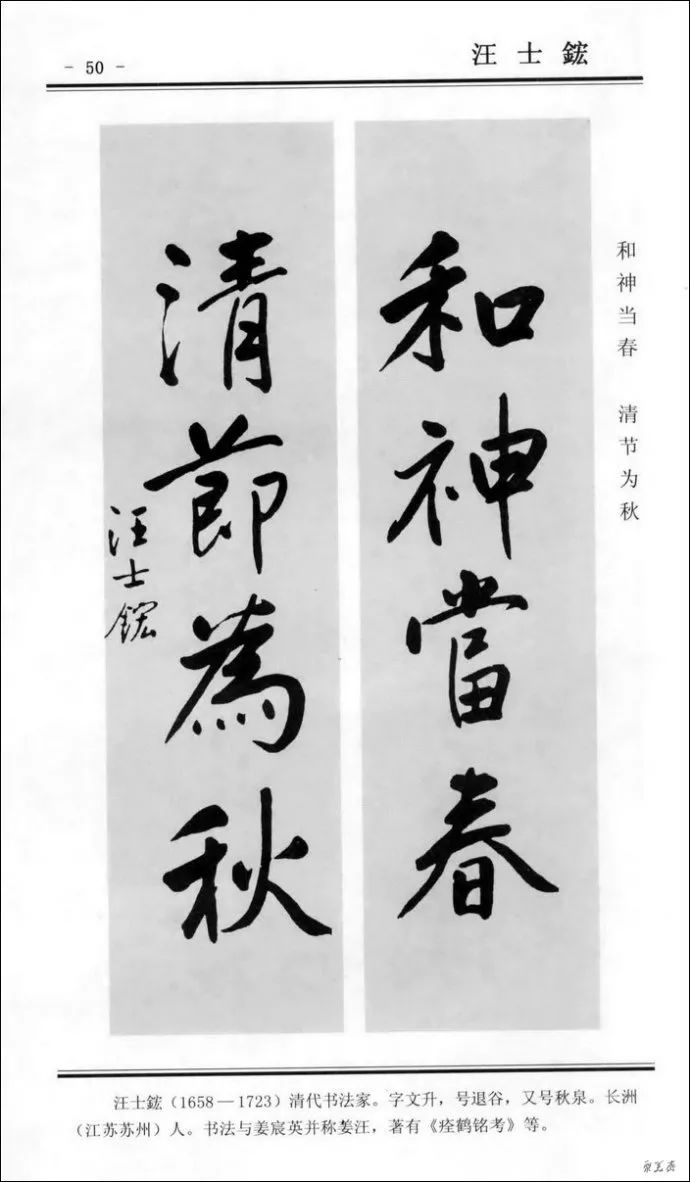 - 50 -
汪士鋐
和神當春
清節為秋
汪士鋐
和神当春 清节为秋
汪士鋐（1658—1723）清代书法家。字文升，号退谷，又号秋泉。长洲
（江苏苏州）人。书法与姜宸英并称姜汪，著有《瘗鹤铭考》等。